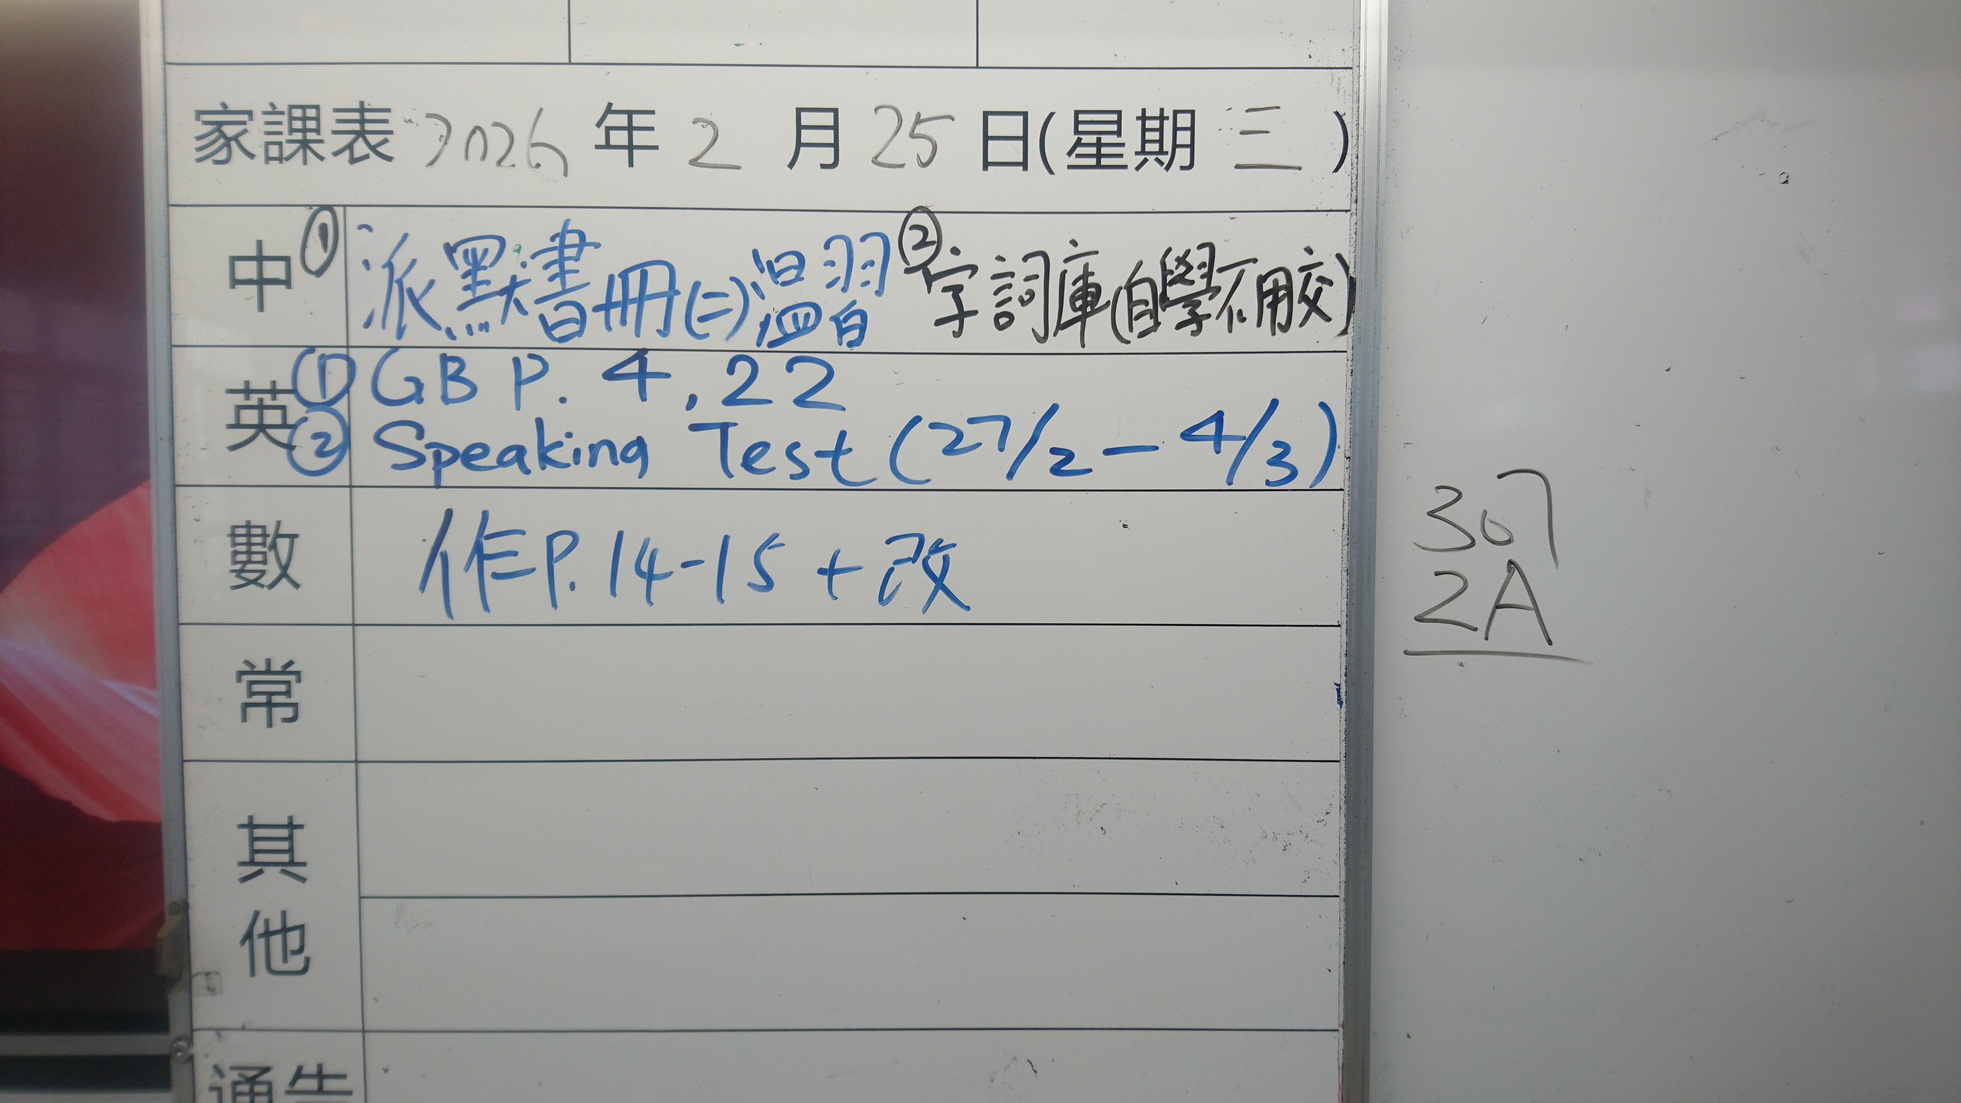 家課表 2026 年 2 月 25 日(星期 三 )
中 ① 派默書冊(二)溫習 ② 字詞庫(自學不用交)
英 ① GB P. 4, 22
② Speaking Test (27/2 - 4/3)
數 作P. 14-15 + 改
常
其他
通告
307
2A